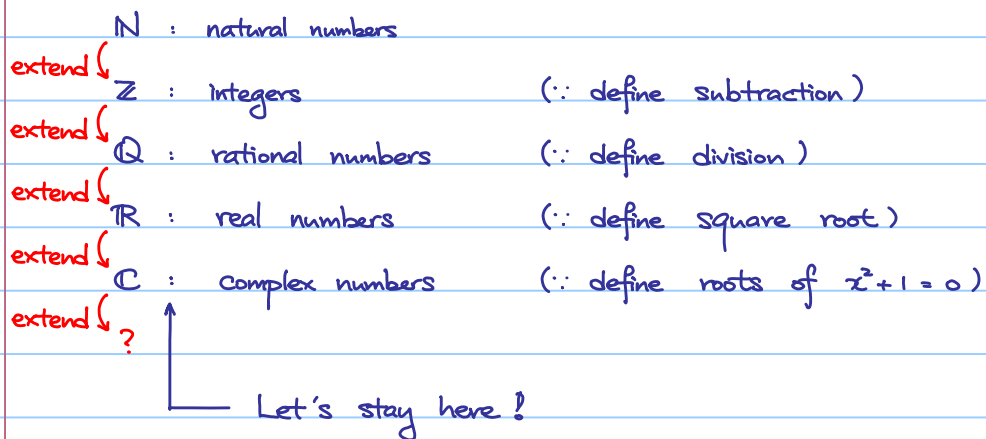 ℕ : natural numbers
extend
ℤ : integers (∵ define subtraction)
extend
ℚ : rational numbers (∵ define division)
extend
ℝ : real numbers (∵ define square root)
extend
ℂ : complex numbers (∵ define roots of x²+1=0)
extend
?
Let's stay here!